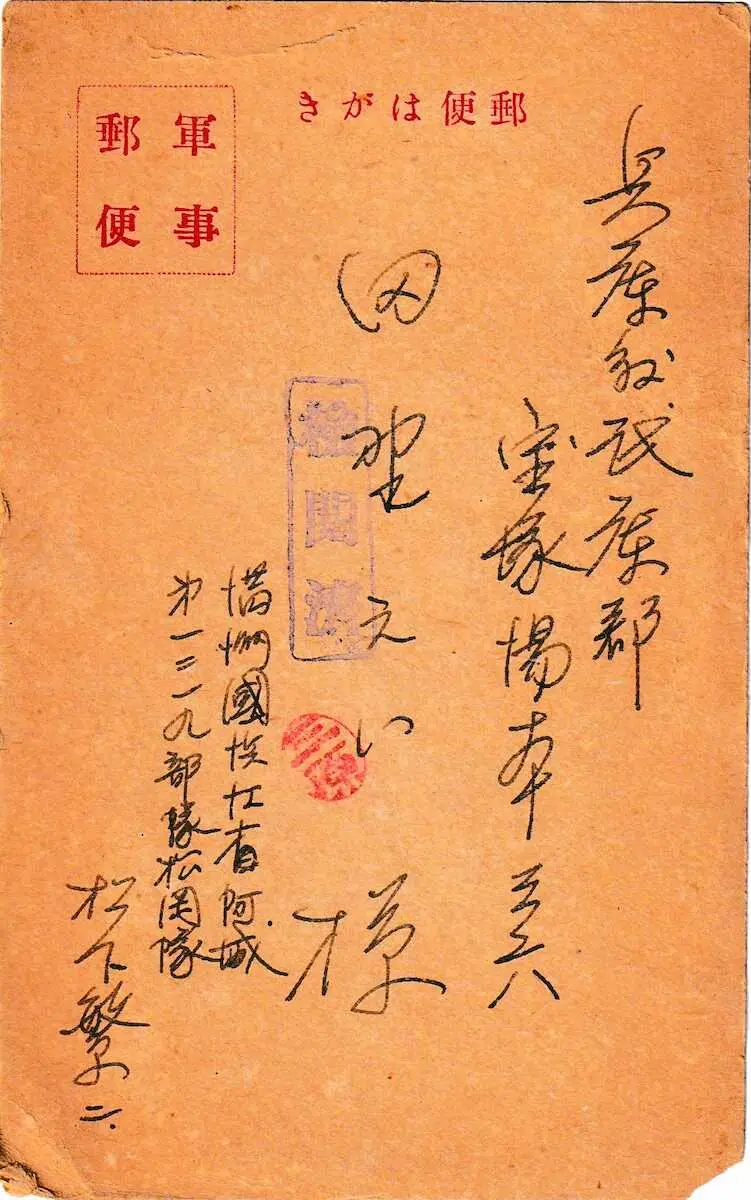 郵便はがき
軍事
郵便
兵庫縣武庫郡
宝塚湯本三六
田野えい様
検閲済
満洲國浜江省阿城
第一三一九部隊松岡隊
松下繁二